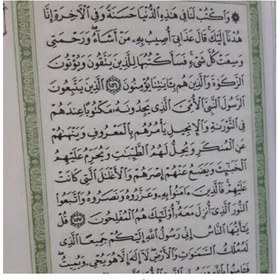 ۞ وَٱكۡتُبۡ لَنَا فِي هَٰذِهِ ٱلدُّنۡيَا حَسَنَةٗ وَفِي ٱلۡأٓخِرَةِ إِنَّا
هُدۡنَآ إِلَيۡكَۚ قَالَ عَذَابِيٓ أُصِيبُ بِهِۦ مَنۡ أَشَآءُۖ وَرَحۡمَتِي
وَسِعَتۡ كُلَّ شَيۡءٖۚ فَسَأَكۡتُبُهَا لِلَّذِينَ يَتَّقُونَ وَيُؤۡتُونَ
ٱلزَّكَوٰةَ وَٱلَّذِينَ هُم بِـَٔايَٰتِنَا يُؤۡمِنُونَ ١٥٦ ٱلَّذِينَ يَتَّبِعُونَ
ٱلرَّسُولَ ٱلنَّبِيَّ ٱلۡأُمِّيَّ ٱلَّذِي يَجِدُونَهُۥ مَكۡتُوبًا عِندَهُمۡ
فِي ٱلتَّوۡرَىٰةِ وَٱلۡإِنجِيلِ يَأۡمُرُهُم بِٱلۡمَعۡرُوفِ وَيَنۡهَىٰهُمۡ
عَنِ ٱلۡمُنكَرِ وَيُحِلُّ لَهُمُ ٱلطَّيِّبَٰتِ وَيُحَرِّمُ عَلَيۡهِمُ
ٱلۡخَبَٰٓئِثَ وَيَضَعُ عَنۡهُمۡ إِصۡرَهُمۡ وَٱلۡأَغۡلَٰلَ ٱلَّتِي كَانَتۡ
عَلَيۡهِمۡۚ فَٱلَّذِينَ ءَامَنُواْ بِهِۦ وَعَزَّرُوهُ وَنَصَرُوهُ وَٱتَّبَعُواْ
ٱلنُّورَ ٱلَّذِيٓ أُنزِلَ مَعَهُۥٓ أُوْلَٰٓئِكَ هُمُ ٱلۡمُفۡلِحُونَ ١٥٧ قُلۡ
يَٰٓأَيُّهَا ٱلنَّاسُ إِنِّي رَسُولُ ٱللَّهِ إِلَيۡكُمۡ جَمِيعًا ٱلَّذِي
لَهُۥ مُلۡكُ ٱلسَّمَٰوَٰتِ وَٱلۡأَرۡضِۖ لَآ إِلَٰهَ إِلَّا هُوَ يُحۡيِۦ وَيُمِيتُۖ